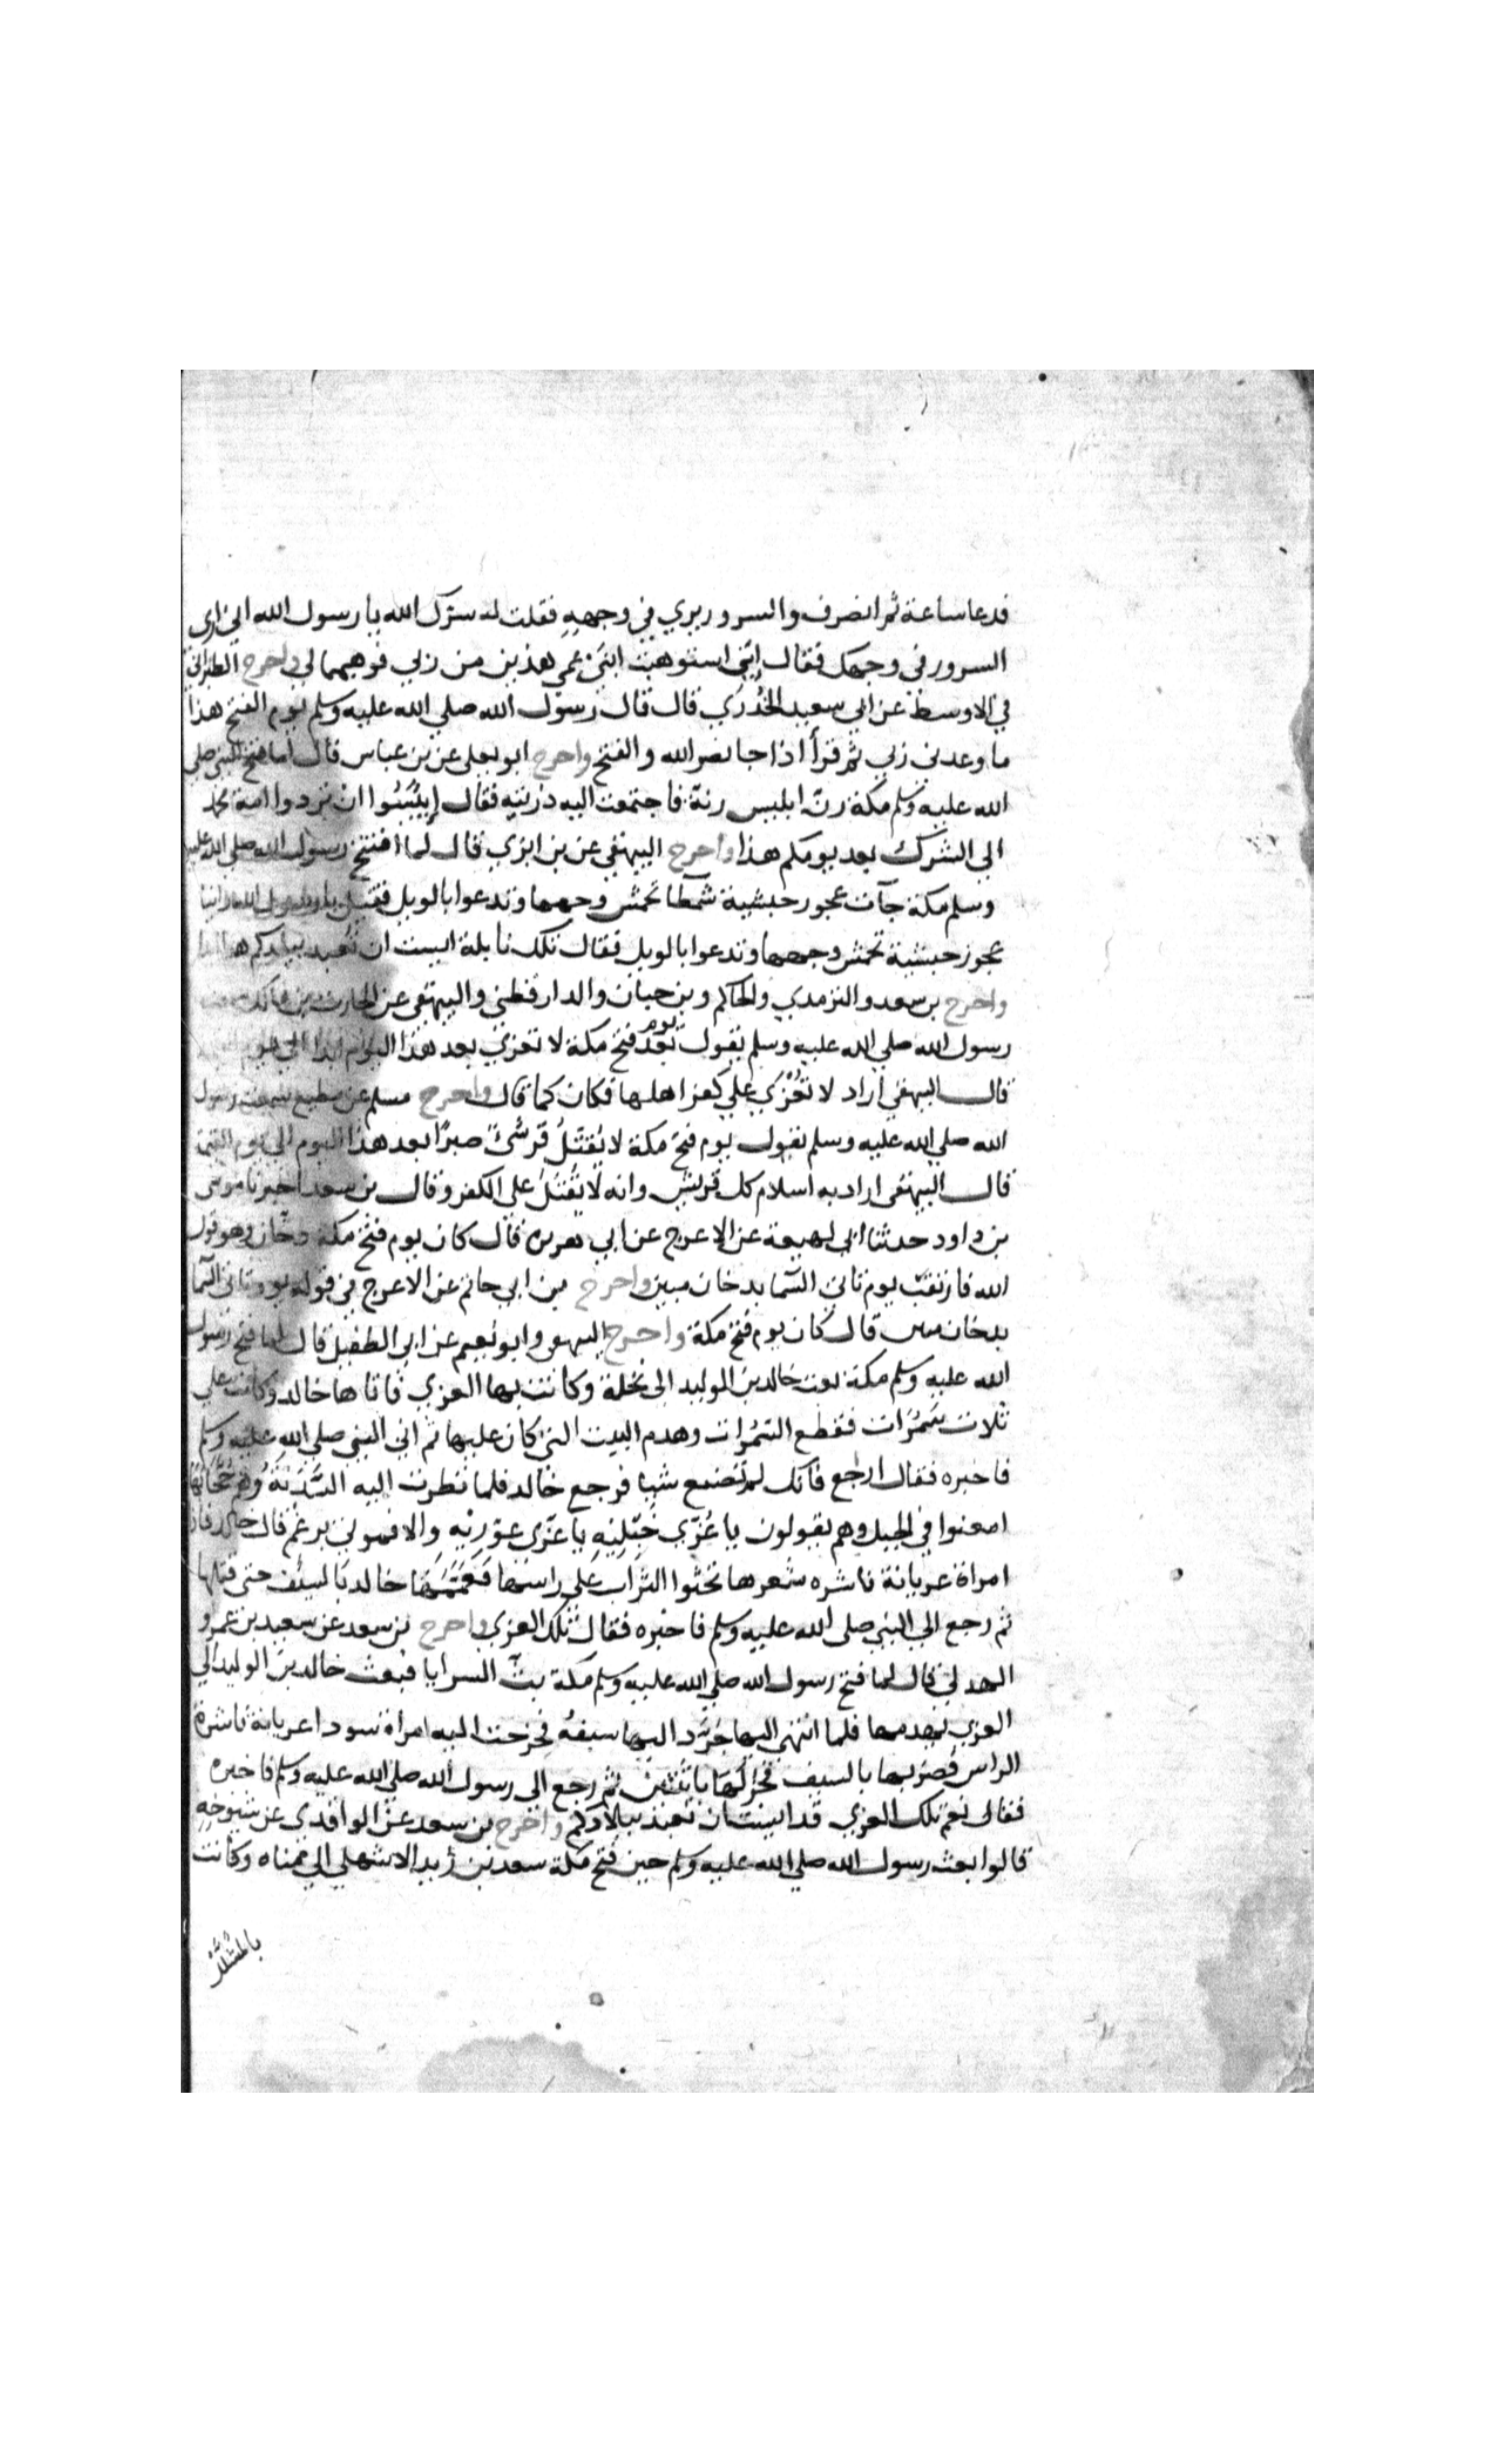 فدعا ساعة ثم انصرف والسرور يري في وجهه فقلت له سرك الله يا رسول الله اني اري
السرور في وجهك فقال اني استوهبت ابني عمي هذين من ربي فوهبهما لي واخرج الطبراني
في الاوسط عن ابي سعيد الخدري قال قال رسول الله صلي الله عليه وسلم يوم الفتح هذا
ما وعدني ربي ثم قرأ اذا جا نصر الله والفتح واخرج ابو يعلي عن بن عباس قال لما فتح النبي صلي
الله عليه وسلم مكة رن ابليس رنة فاجتمعت اليه ذريته فقال إيئسوا ان تردوا امة محمد
الى الشرك بعد يومكم هذا واخرج البيهقي عن بن ابزي قال لما افتتح رسول الله صلي الله عليه
وسلم مكة جآت عجوز حبشية شمطا تخمش وجهها وتدعوا بالويل فقيل يا رسول الله راينا
عجوز حبشية تخمش وجهها وتدعوا بالويل فقال تلك نايلة ايست ان تعبد ببلدكم هذا
واخرج بن سعد والترمذي والحاكم وبن حبان والدارقطني والبيهقي عن الحارث بن مالك سمعت
رسول الله صلي الله عليه وسلم يقول يوم فتح مكة لا تغزي بعد هذا اليوم ابدا الي يوم
قال البيهقي اراد لا تغزي علي كفر اهلها فكان كما قال واخرج مسلم عن مطيع سمعت رسول
الله صلي الله عليه وسلم يقول يوم فتح مكة لا يقتل قرشي صبرا بعد هذا اليوم الي يوم القيمة
قال البيهقي اراد به اسلام كل قريش وانه لا يقتل على الكفر وقال بن سعد اخبرنا موسي
بن داود حدثنا ابي لهيعة عن الاعرج عن ابي هريرة قال كان يوم فتح مكة دخان وهو قول
الله فارتقب يوم تاتي السما بدخان مبين واخرج بن ابي حاتم عن الاعرج في قوله يوم تاتي السما
بدخان مبين قال كان يوم فتح مكة واخرج البيهقي وابو نعيم عن ابي الطفيل قال لما فتح رسول
الله عليه وسلم مكة بعث خالد بن الوليد الي نخلة وكانت بها العزي فاتاها خالد وكانت علي
ثلاث سمرات فقطع السمرات وهدم البيت التي كان عليها ثم اتي النبي صلي الله عليه وسلم
فاخبره فقال ارجع فانك لم تصنع شيا فرجع خالد فلما نظرت اليه السدنة وهم حجابها
امعنوا في الجبل وهم يقولون يا عزي خبليه يا عزي عوريه والا فموتي برغم قال خالد فاذا
امراة عريانة ناشره شعرها تحثوا التراب علي راسها فعممها خالد بالسيف حتى قتلها
ثم رجع الي النبي صلى الله عليه وسلم فاخبره فقال تلك العزي واخرج بن سعد عن سعيد بن عمرو
الهدلي قال لما فتح رسول الله صلي الله عليه وسلم مكة بث السرايا فبعث خالد بن الوليد الي
العزي يهدمها فلما انتهى اليها جرد اليها سيفه فخرجت اليه امراة سودا عريانة ناشرة
الراس فضربها بالسيف فجزلها باثنتين ثم رجع الى رسول الله صلي الله عليه وسلم فاخبره
فقال نعم تلك العزي قد ايست ان تعبد ببلادكم واخرج بن سعد عن الواقدي عن شيوخه
قالوا بعث رسول الله صلي الله عليه وسلم حين فتح مكة سعد بن زيد الاشهلي الي مناه وكانت
بالمشلل